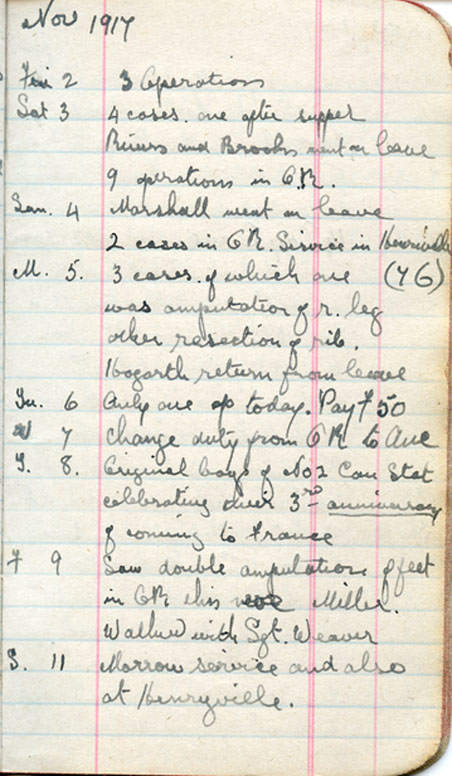 Nov 1917
Fri 2 3 Operations
Sat 3 4 cases. one after supper
Rivers and Brooks went on leave
9 operations in O.R.
Sun. 4 Marshall went on leave
2 cases in OR. Service in Henriville
M. 5. 3 cases. of which one (Y G)
was amputation of r. leg
other resection of rib.
Hogarth return from leave
Tu. 6 Only one op today. Pay F 50
W 7 Change duty from OR to
T. 8. Original boys of No 2 Can Stat
celebrating their 3rd anniversary
of coming to France
F 9 Saw double amputation of feet
in OR this Miller.
Walked with Sgt. Weaver
S. 11 Morrow service and also
at Henryville.